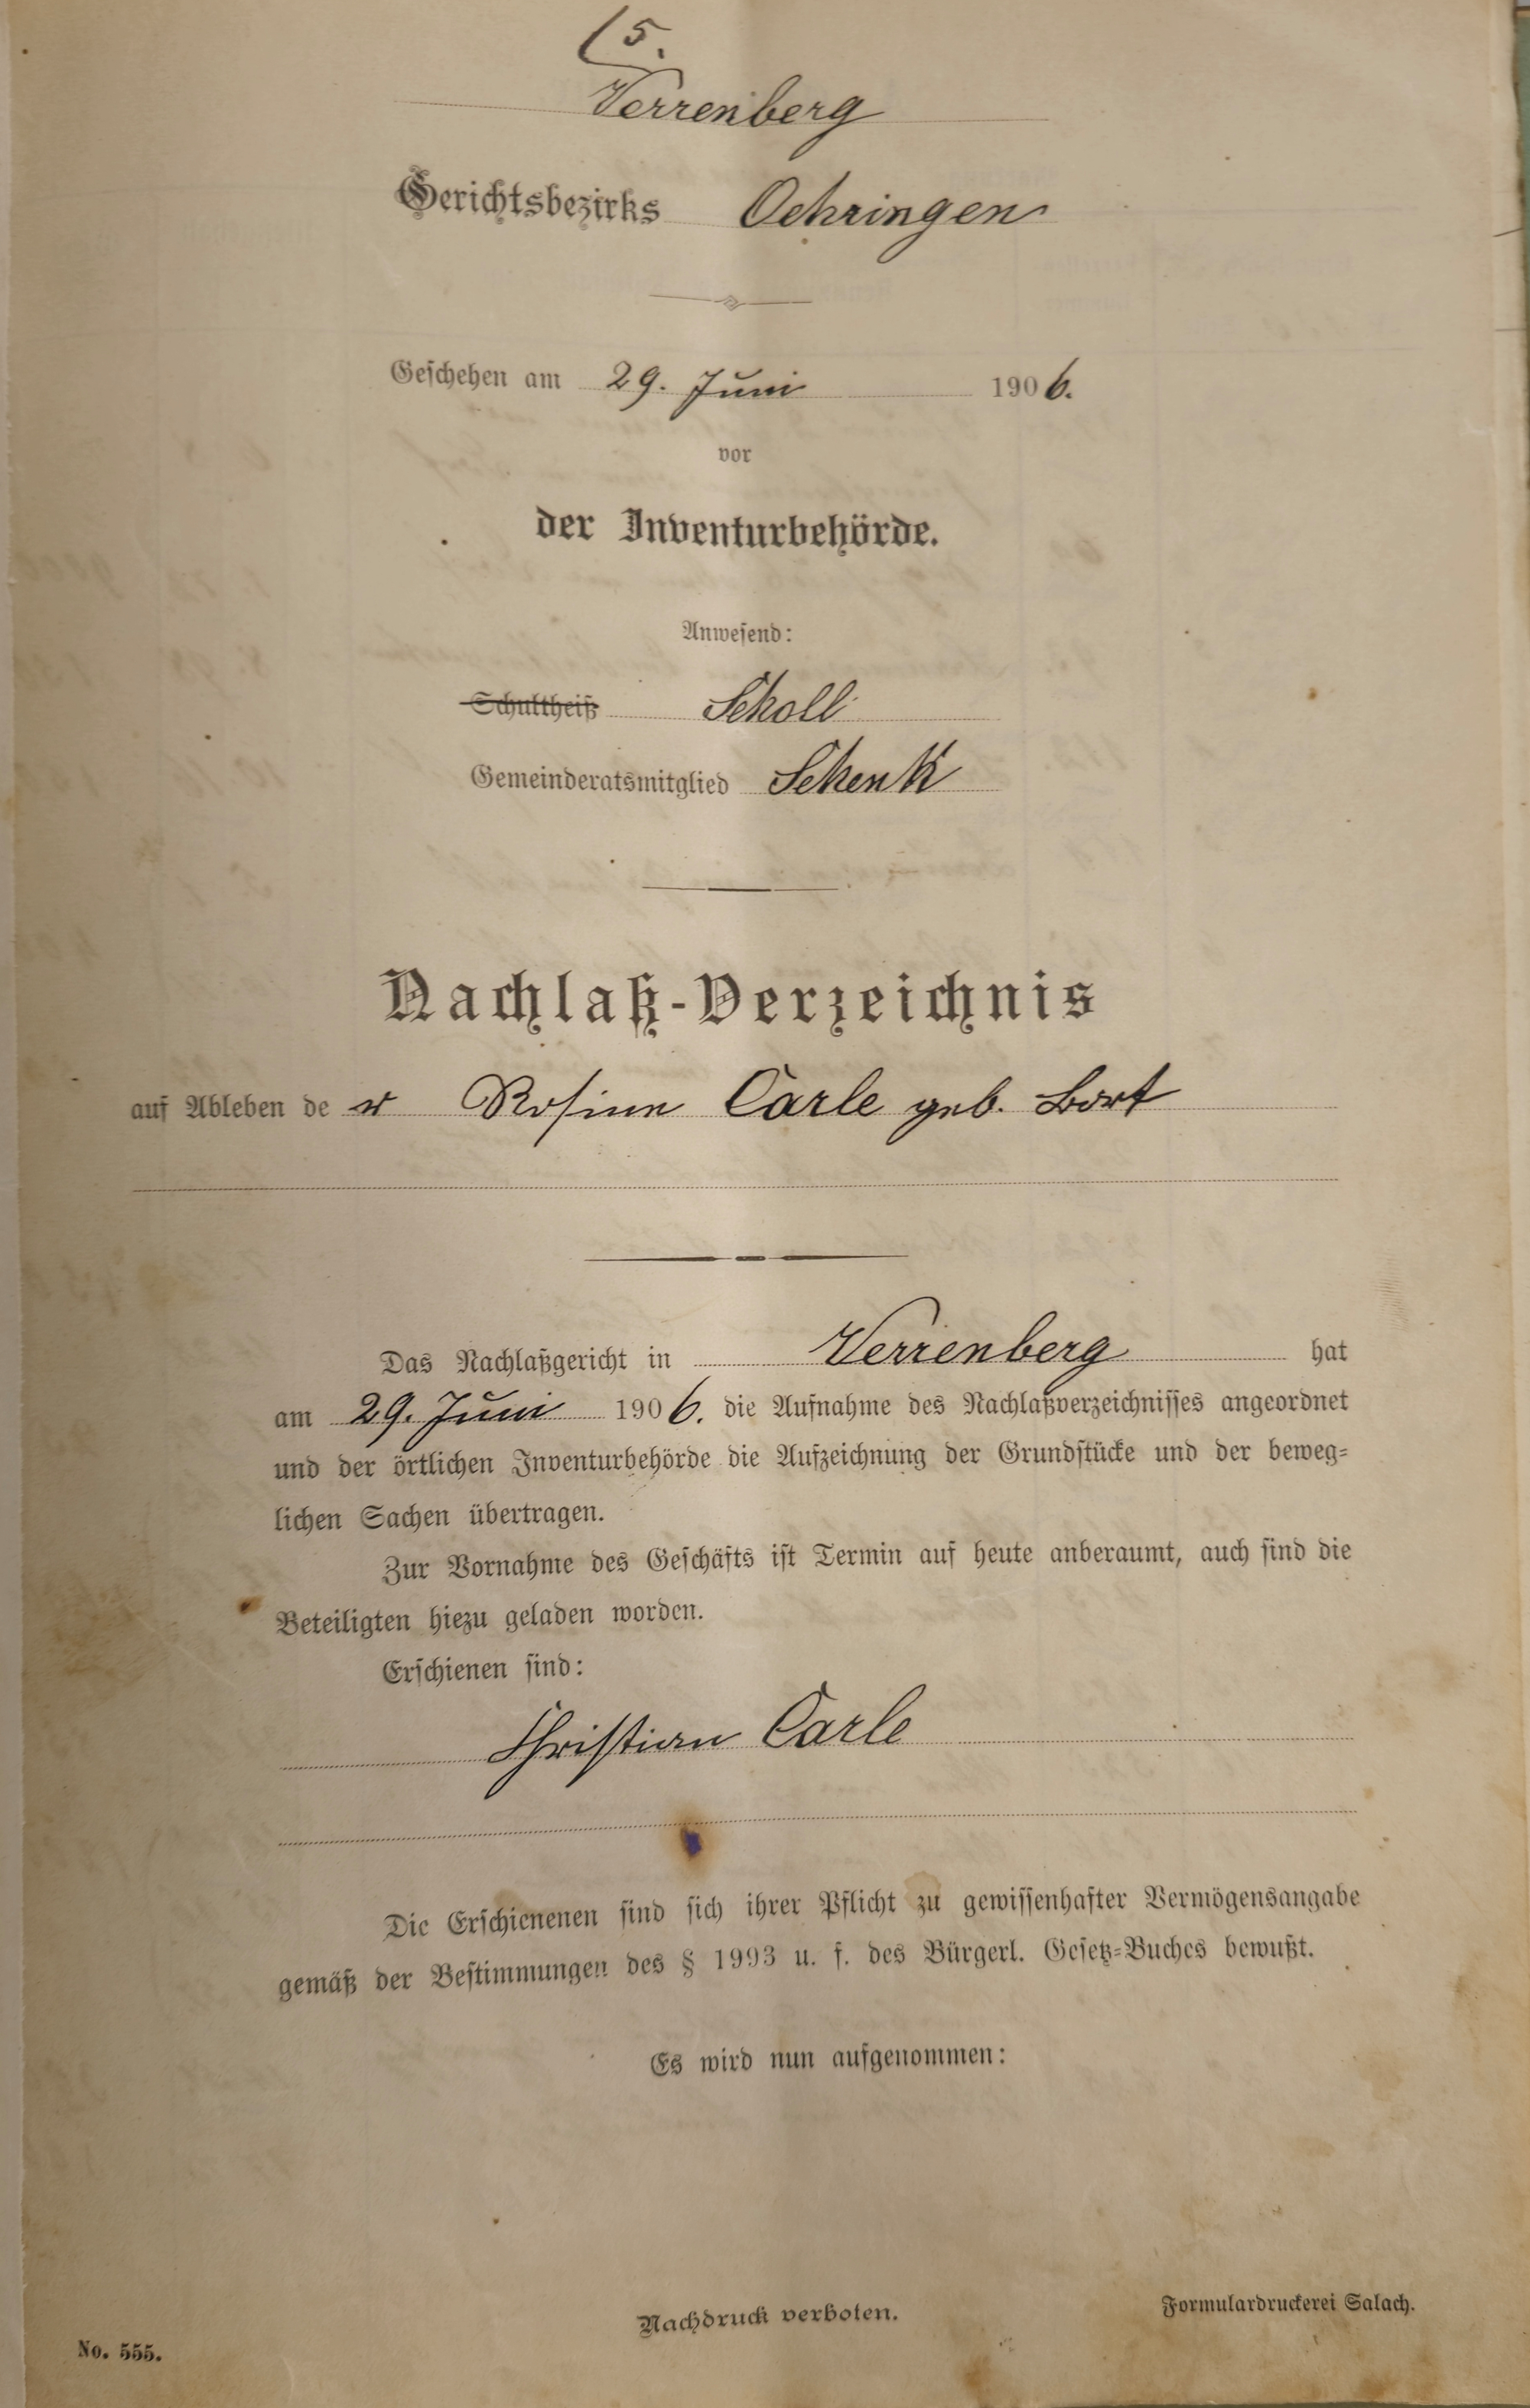 5.
Verrenberg
Gerichtsbezirks Oehringen
Geschehen am 29. Juni 1906.
vor
der Inventurbehörde.
Anwesend:
Schultheiß Scholl
Gemeinderatsmitglied Schenk
Nachlaß-Verzeichnis
auf Ableben der Rosine Carle geb. Bort
Das Nachlaßgericht in Verrenberg hat
am 29. Juni 1906. die Aufnahme des Nachlaßverzeichnisses angeordnet
und der örtlichen Inventurbehörde die Aufzeichnung der Grundstücke und der beweg-
lichen Sachen übertragen.
Zur Vornahme des Geschäfts ist Termin auf heute anberaumt, auch sind die
Beteiligten hiezu geladen worden.
Erschienen sind:
Christian Carle
Die Erschienenen sind sich ihrer Pflicht zu gewissenhafter Vermögensangabe
gemäß der Bestimmungen des § 1993 u. f. des Bürgerl. Gesetz-Buches bewußt.
Es wird nun aufgenommen:
Nachdruck verboten.
Formulardruckerei Salach.
No. 555.